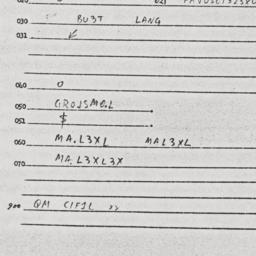 030 BU3T LANG
031
060 0
050 GROJSMEL.
051 $
060 MA.L3XL MAL3XL
070 MA.L3XL3X
900 QM CIFIL »